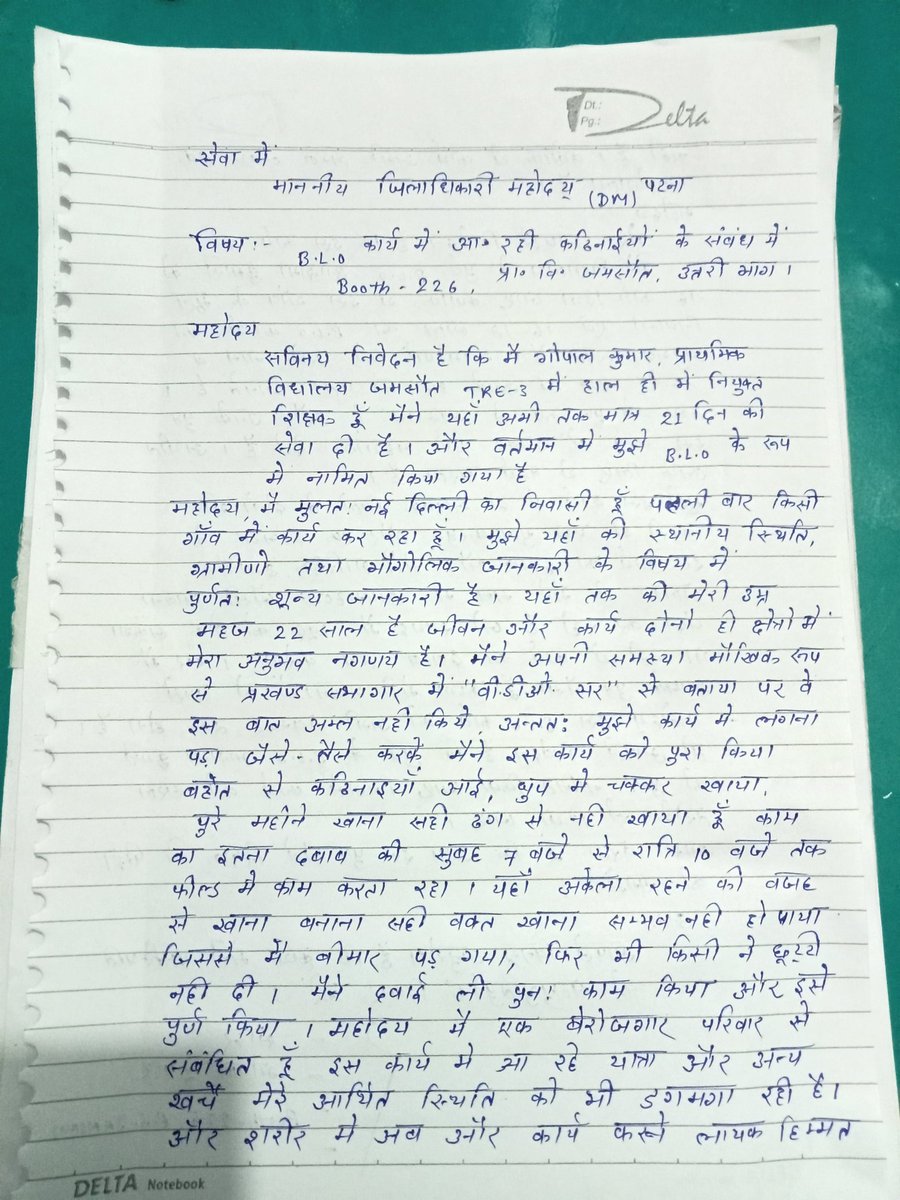 Dt.:
Pg.:
Delta
सेवा में
माननीय जिलाधिकारी महोदय (DM) पटना
विषय :- B.L.O कार्य में आ रही कठिनाईयों के संबंध में
Booth - 226, प्रा. वि. जमसौत, उतरी भाग।
महोदय
सविनय निवेदन है कि मै गोपाल कुमार, प्राथमिक
विधालय जमसौत TRE-3 में हाल ही में नियुक्त
शिक्षक हूँ मैने यहाँ अभी तक मात्र 21 दिन की
सेवा दी है। और वर्तमान मे मुझे B.L.O के रूप
मे नामित किया गया है
महोदय, मै मुलत: नई दिल्ली का निवासी हूँ पहली बार किसी
गाँव में कार्य कर रहा हूँ। मुझे यहाँ की स्थानीय स्थिति,
ग्रामीणो तथा भौगोलिक जानकारी के विषय में
पुर्णत: शून्य जानकारी है। यहाँ तक की मेरी उम्र
महज 22 साल है जीवन और कार्य दोनो ही क्षेत्रो में
मेरा अनुभव नगणय है। मैने अपनी समस्या मौखिक रूप
से प्रखण्ड सभागार में "वी.डीओ. सर" से बताया पर वे
इस बात अम्ल नही किये, अन्तत: मुझे कार्य मे लगना
पड़ा जैसे - तैसे करके मैने इस कार्य को पुरा किया
बहोत से कठिनाइयाँ आई, धुप मे चक्कर खाया,
पुरे महीने खाना सही ढंग से नही खाया हूँ काम
का इतना दबाव की सुबह 7 बजे से रात्रि 10 बजे तक
फील्ड मे काम करता रहा। यहाँ अकेला रहने की वजह
से खाना बनाना सही वक्त खाना सम्भव नही हो पाया
जिससे मै बीमार पड़ गया, फिर भी किसी ने छूट्टी
नही दी। मैने दवाई ली पुन: काम किया और इसे
पुर्ण किया। महोदय मै एक बेरोजगार परिवार से
संबंधित हूँ इस कार्य मे आ रहे यात्रा और अन्य
खर्चे मेरे आर्थित स्थिति को भी डगमगा रही है।
और शरीर मे अब और कार्य करने लायक हिम्मत
DELTA Notebook